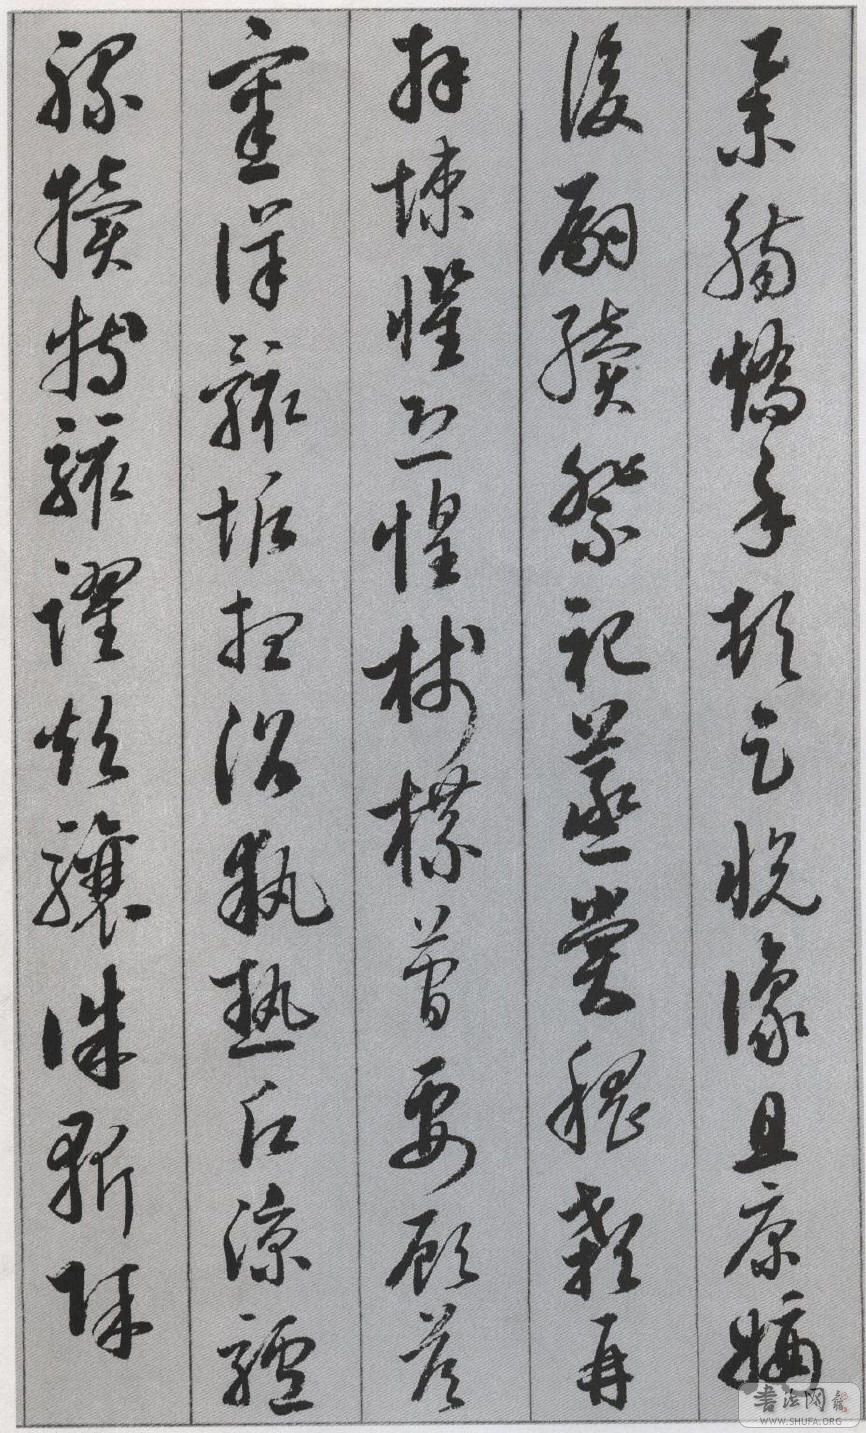 舉觴矯手頓足悅豫且康嫡
後嗣續祭祀蒸嘗稽顙再
拜悚懼恐惶牋牒簡要顧答
審詳骸垢想浴執熱願涼驢
騾犢特駭躍超驤誅斬賊
書法网
WWW.SHUFA.ORG